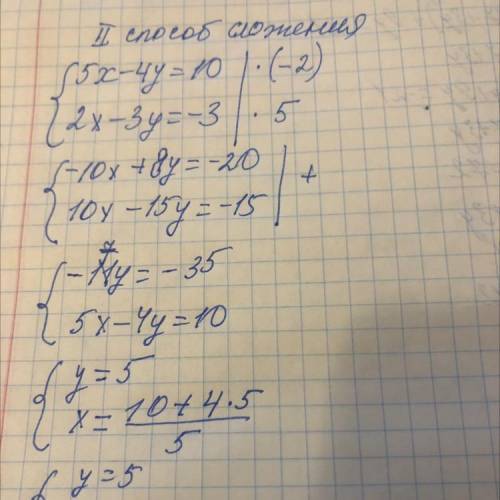 II способ сложения
5x-4y=10 | ·(-2)
2x-3y=-3 | · 5
-10x+8y=-20
10x-15y=-15 | +
-7y=-35
5x-4y=10
y=5
x=10+4·5/5
y=5